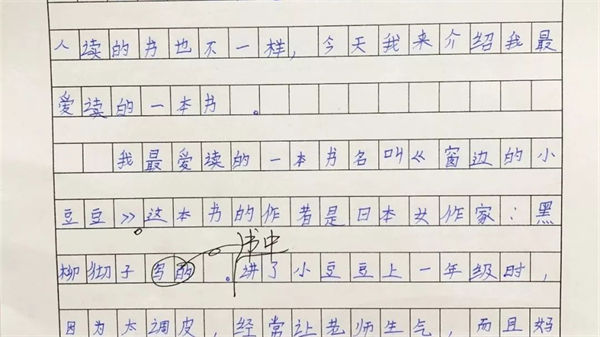 人读的书也不一样，今天我来介绍我最
爱读的一本书。
我最爱读的一本书名叫《窗边的小
豆豆》。这本书的作者是日本女作家：黑
柳彻子写的。书中讲了小豆豆上一年级时，
因为太调皮，经常让老师生气，而且妈